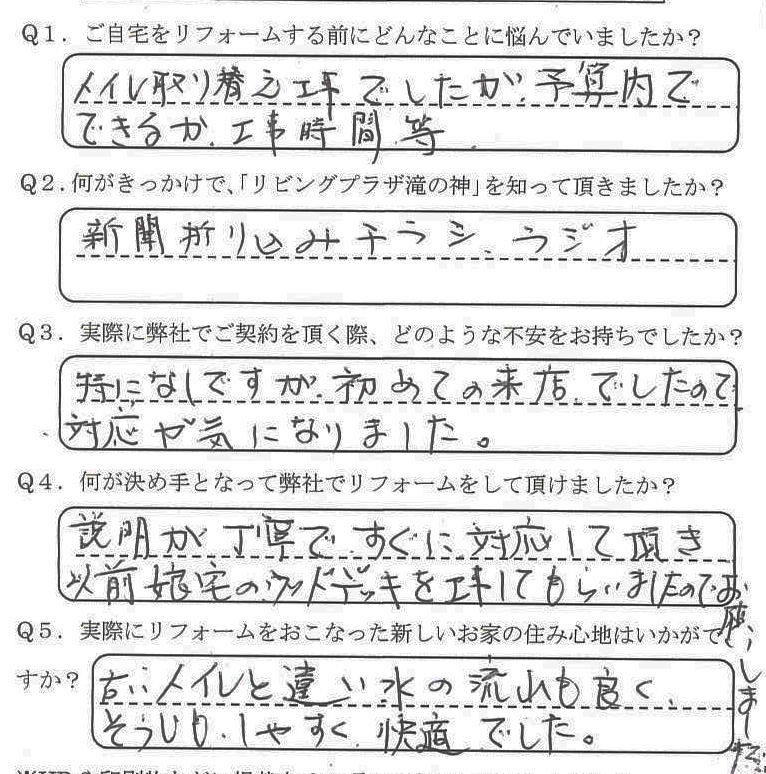 Q1．ご自宅をリフォームする前にどんなことに悩んでいましたか？
トイレ取り替え工事でしたが、予算内で
できるか、工事時間、等、
Q2.何がきっかけで、「リビングプラザ滝の神」を知って頂きましたか？
新聞折り込みチラシ、ラジオ
Q3．実際に弊社でご契約を頂く際、どのような不安をお持ちでしたか？
特になしですが、初めての来店、でしたので、
対応が気になりました。
Q4．何が決め手となって弊社でリフォームをして頂けましたか？
説明が丁寧で、すぐに、対応して頂き
以前娘宅のウッドデッキを工事してもらいましたのでお
願いしました。
Q5．実際にリフォームをおこなった新しいお家の住み心地はいかがで
すか？
古いトイレと違い水の流れも良く、
そうじも、しやすく、快適でした。